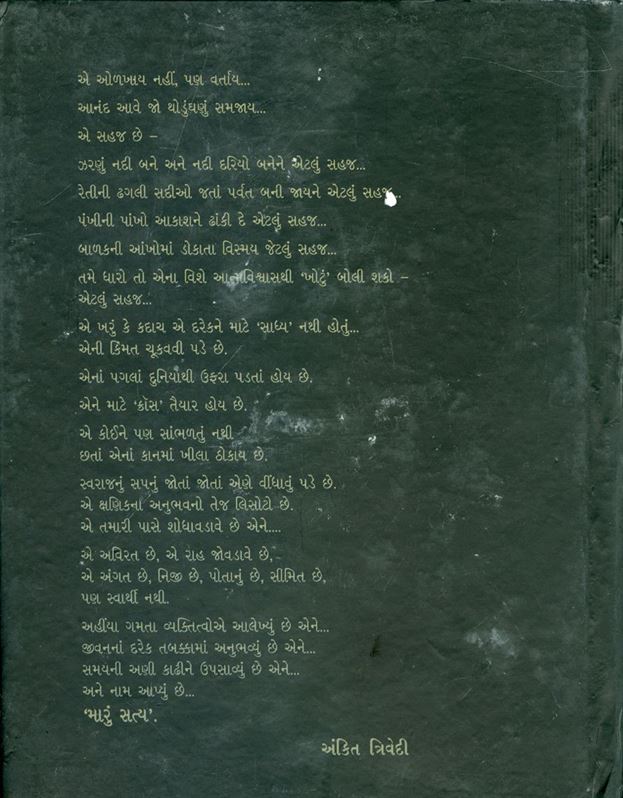 એ ઓળખાય નહીં, પણ વર્તાય...
આનંદ આવે જો થોડુંઘણું સમજાય...
એ સહજ છે –
ઝરણું નદી બને અને નદી દરિયો બનેને એટલું સહજ...
રેતીની ઢગલી સદીઓ જતાં પર્વત બની જાયને એટલું સહજ...
પંખીની પાંખો આકાશને ઢાંકી દે એટલું સહજ...
બાળકની આંખોમાં ડોકાતા વિસ્મય જેટલું સહજ...
તમે ધારો તો એના વિશે આત્મવિશ્વાસથી ‘ખોટું’ બોલી શકો –
એટલું સહજ...
એ ખરું કે કદાચ એ દરેકને માટે ‘સાધ્ય’ નથી હોતું...
એની કિંમત ચૂકવવી પડે છે.
એનાં પગલાં દુનિયાથી ઉફરા પડતાં હોય છે.
એને માટે ‘ક્રૉસ’ તૈયાર હોય છે.
એ કોઈને પણ સાંભળતું નથી
છતાં એનાં કાનમાં ખીલા ઠોકાય છે.
સ્વરાજનું સપનું જોતાં જોતાં એણે વીંધાવું પડે છે.
એ ક્ષણિકના અનુભવનો તેજ લિસોટો છે.
એ તમારી પાસે શોધાવડાવે છે એને....
એ અવિરત છે, એ રાહ જોવડાવે છે,
એ અંગત છે, નિજી છે, પોતાનું છે, સીમિત છે,
પણ સ્વાર્થી નથી.
અહીંયા ગમતા વ્યક્તિત્વોએ આલેખ્યું છે એને...
જીવનનાં દરેક તબક્કામાં અનુભવ્યું છે એને...
સમયની અણી કાઢીને ઉપસાવ્યું છે એને...
અને નામ આપ્યું છે...
‘મારું સત્ય’.
અંકિત ત્રિવેદી